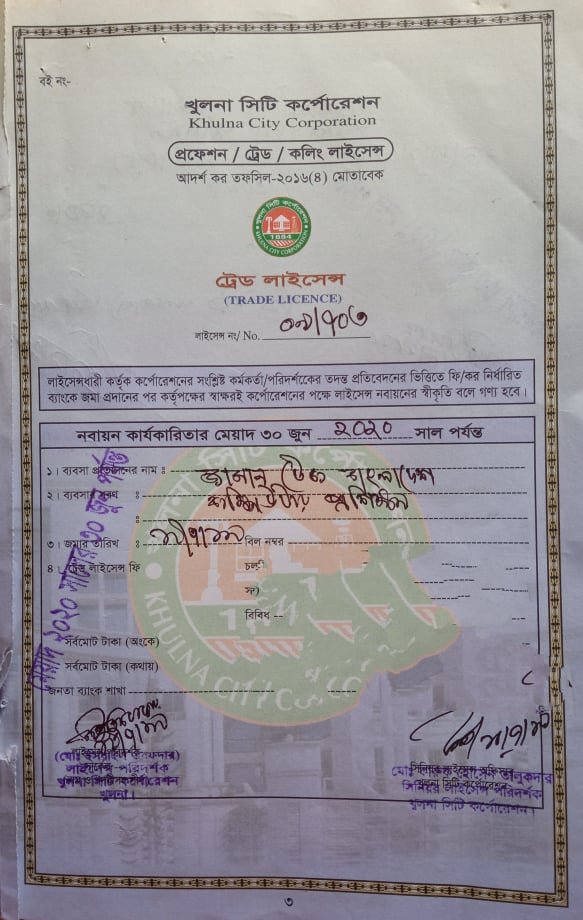 বই নং-
খুলনা সিটি কর্পোরেশন
Khulna City Corporation
প্রফেশন / ট্রেড / কলিং লাইসেন্স
আদর্শ কর তফসিল-২০১৬(৪) মোতাবেক
খুলনা সিটি কর্পোরেশন
1884
KHULNA CITY CORPORATION
ট্রেড লাইসেন্স
(TRADE LICENCE)
লাইসেন্স নং/ No.
লাইসেন্সধারী কর্তৃক কর্পোরেশনের সংশ্লিষ্ট কর্মকর্তা/পরিদর্শকের তদন্ত প্রতিবেদনের ভিত্তিতে ফি/কর নির্ধারিত
ব্যাংকে জমা প্রদানের পর কর্তৃপক্ষের স্বাক্ষরই কর্পোরেশনের পক্ষে লাইসেন্স নবায়নের স্বীকৃতি বলে গণ্য হবে।
নবায়ন কার্যকারিতার মেয়াদ ৩০ জুন ২০২০ সাল পর্যন্ত
১। ব্যবসা প্রতিষ্ঠানের নাম :
২। ব্যবসার ধরণ :
কম্পিউটার প্রশিক্ষন
৩। জমার তারিখ : বিল নম্বর
৪। ট্রেড লাইসেন্স ফি
বিবিধ --
সর্বমোট টাকা (অংকে)
সর্বমোট টাকা (কথায়)
জনতা ব্যাংক শাখা
মেয়াদ ২০২০ সালের ৩০ জুন পর্যন্ত
KHULNA CITY
লাইসেন্স পরিদর্শক
খুলনা সিটি কর্পোরেশন
খুলনা।
সিনিয়র লাইসেন্স পরিদর্শক
খুলনা সিটি কর্পোরেশন।
৩